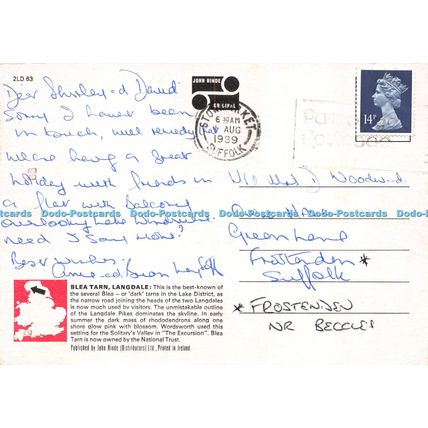 2LD 63
JOHN HINDE
ORIGINAL
STOWMARKET
6 15AM
AUG
1989
SUFFOLK
14P
Dear Shirley & David
Sorry I haven't been
in touch, will ready
We are having a great
holiday with friends in
a flat with balcony
overlooking Lake Windermere
need I say more?
Best wishes
Anne & Brian
Mrs J Woodward
Green Lane
Frostenden *
Suffolk
* FROSTENDEN
NR BECCLES
Dodo-Postcards Dodo-Postcards Dodo-Postcards Dodo-Postcards Dodo-Postcards
BLEA TARN, LANGDALE: This is the best-known of
the several Blea – or 'dark' tarns in the Lake District, as
the narrow road joining the heads of the two Langdales
is now much used by visitors. The unmistakable outline
of the Langdale Pikes dominates the skyline. In early
summer the dark mass of rhododendrons along one
shore glow pink with blossom. Wordsworth used this
setting for the Solitary's Valley in "The Excursion". Blea
Tarn is now owned by the National Trust.
Published by John Hinde (Distributors) Ltd. Printed in Ireland.